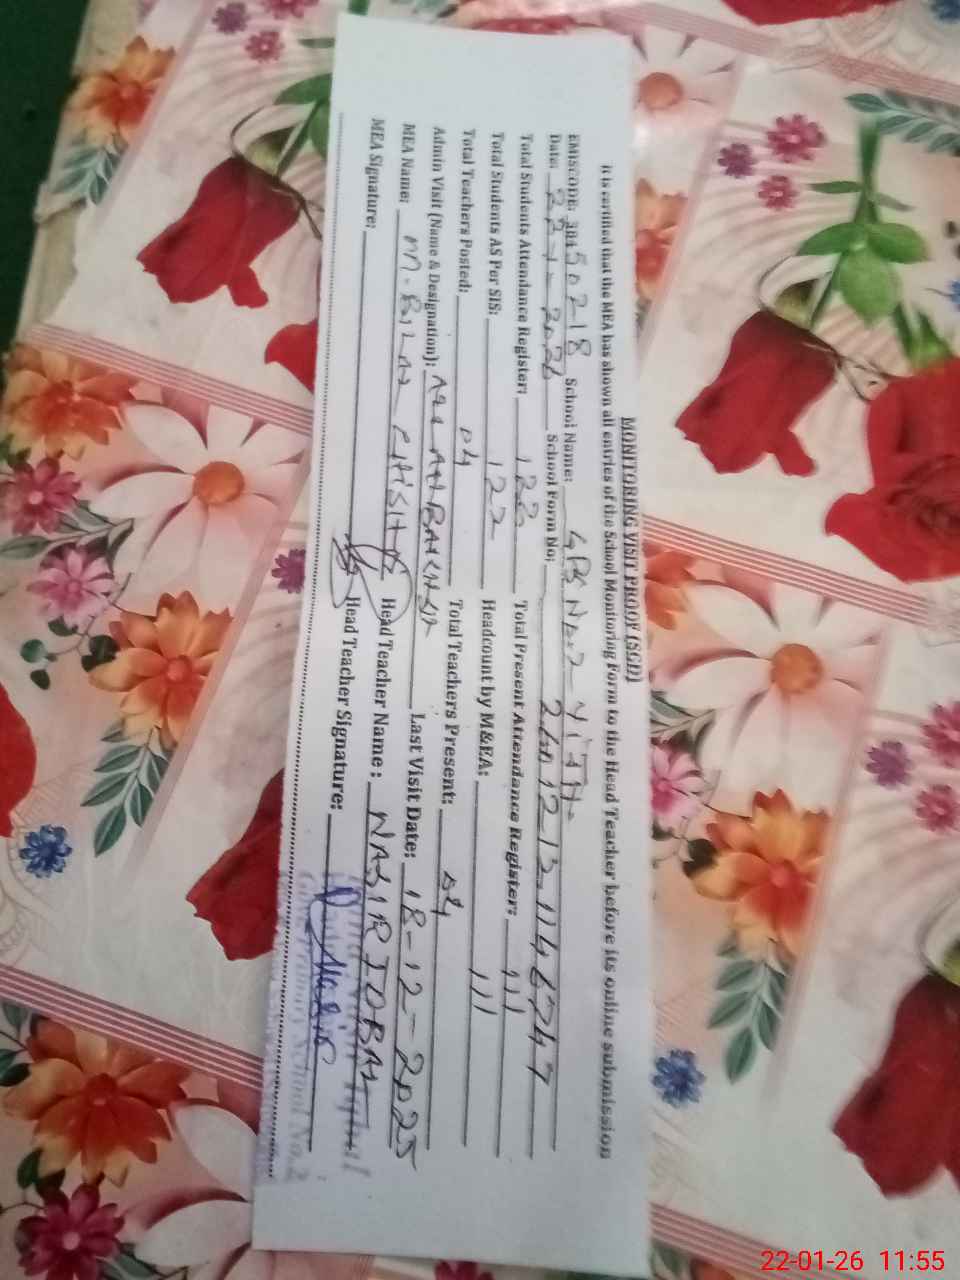 MONITORING VISIT PROOF (SGD)
It is certified that the MEA has shown all entries of the School Monitoring Form to the Head Teacher before its online submission
EMISCODE: School Name: GPS No. 2
Date: 22-1-2026 School Form No:
Total Students Attendance Register: 122 Total Present Attendance Register: 111
Total Students AS Per SIS: 122 Headcount by M&EA: 111
Total Teachers Posted: 04 Total Teachers Present: 04
Admin Visit (Name & Designation): Last Visit Date: 18-12-2025
MEA Name: M. BILAL Head Teacher Name: NASIR IQBAL
MEA Signature: Head Teacher Signature:
School No. 2
22-01-26 11:55